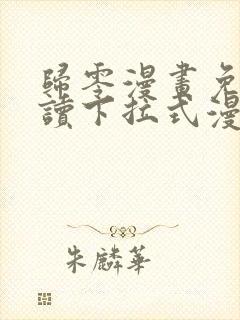 歸零漫畫免
讀下拉式漫
朱麟華